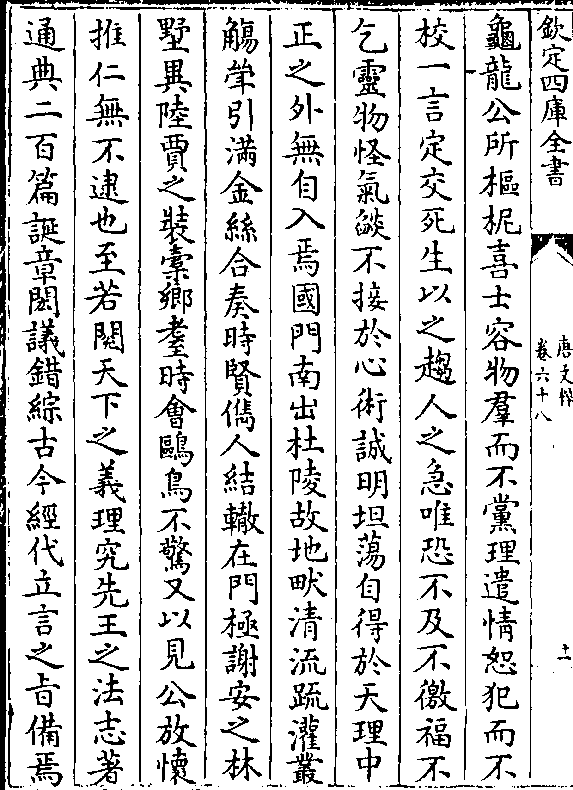 欽定四庫全書
唐文粹
卷六十八
十一
龜龍公所樞柅喜士容物羣而不黨理遣情恕犯而不
校一言定交死生以之趨人之急唯恐不及不徼福不
乞靈物怪氣燄不接於心術誠明坦蕩自得於天理中
正之外無自入焉國門南出杜陵故地畎清流疏灌叢
觴斝引滿金絲合奏時賢儁人結轍在門極謝安之林
墅異陸賈之裝橐鄉耋時會鷗鳥不驚又以見公放懷
推仁無不逮也至若閱天下之義理究先王之法志著
通典二百篇誕章閎議錯綜古今經代立言之旨備焉